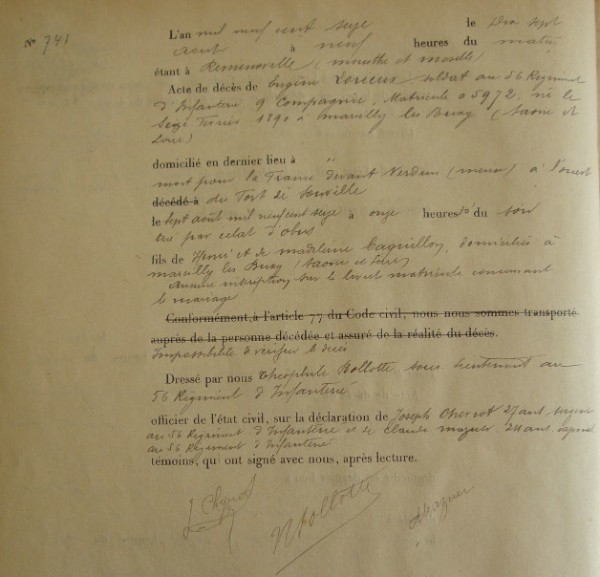 N° 741
L'an mil neuf cent seize le Dix sept
Aout à neuf heures du matin
étant à Remenoville (meurthe et moselle)
Acte de décès de Eugène soldat au 56 Régiment
d'Infanterie 9 Compagnie, Matricule 05972, né le
Seize 1890 à marcilly les Buxy (Saone et
Loire)
domicilié en dernier lieu à "
mort pour la France devant Verdun (meuse) à l'ouest
décédé à du Fort de Souville
le sept août mil neuf cent seize à onze heures du soir
tué par eclat d'obus
fils de et de madeleine domiciliés à
marcilly les Buxy (Saone et Loire)
Aucune inscription sur le livret matricule concernant
le mariage
Conformément, à l'article 77 du Code civil, nous nous sommes transporté
auprès de la personne décédée et assuré de la réalité du décès.
Impossibilité de verifier le décès
Dressé par nous Théophile Bollotte sous lieutenant au
56 Régiment d'Infanterie
officier de l'état civil, sur la déclaration de Joseph 27 ans, sergent
au 56 Régiment d'Infanterie et de claude ans, caporal
au 56 Régiment d'Infanterie
témoins, qui ont signé avec nous, après lecture.
Bollotte